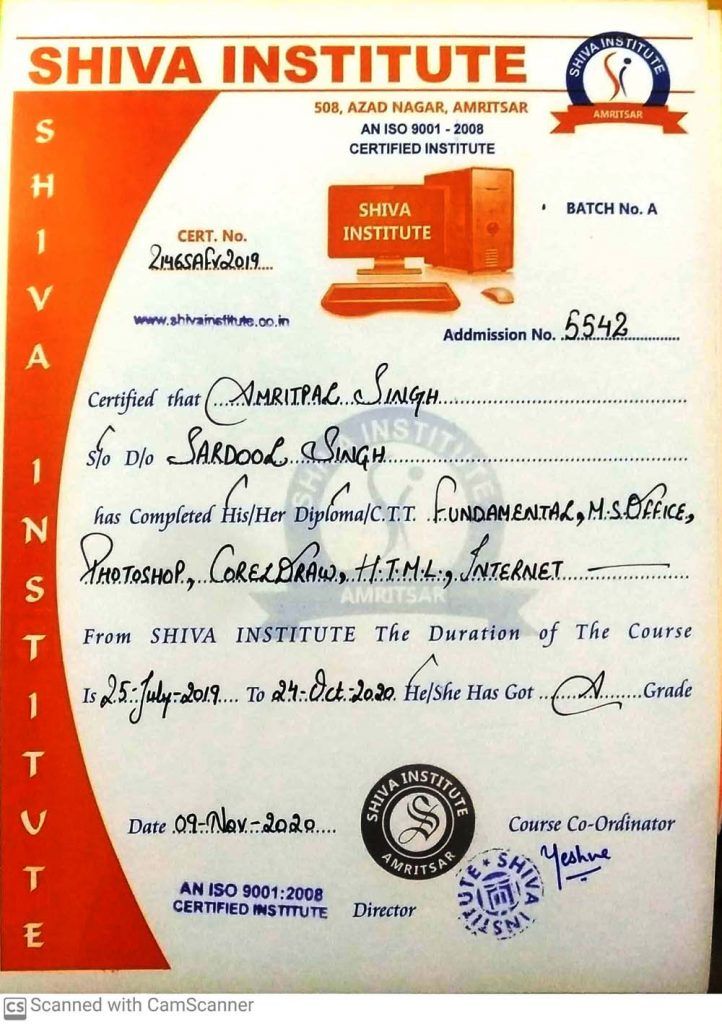 SHIVA INSTITUTE
SHIVA INSTITUTE
AMRITSAR
508, AZAD NAGAR, AMRITSAR
AN ISO 9001 - 2008
CERTIFIED INSTITUTE
SHIVA INSTITUTE
SHIVA
INSTITUTE
BATCH No. A
CERT. No.
2146SAFV2019
www.shivainstitute.co.in
Addmission No. 5542
Certified that AMRITPAL SINGH
S/o D/o SARDOOL SINGH
has Completed His/Her Diploma/C.T.T. FUNDAMENTAL, M.S.OFFICE,
PHOTOSHOP, CORELDRAW, H.T.M.L., INTERNET
SHIVA INSTITUTE
AMRITSAR
From SHIVA INSTITUTE The Duration of The Course
Is 25-July-2019 To 24-Oct-2020 He/She Has Got A Grade
SHIVA INSTITUTE
AMRITSAR
Date 09-Nov-2020
Course Co-Ordinator
AN ISO 9001:2008
CERTIFIED INSTITUTE
Director
SHIVA INSTITUTE
CS Scanned with CamScanner